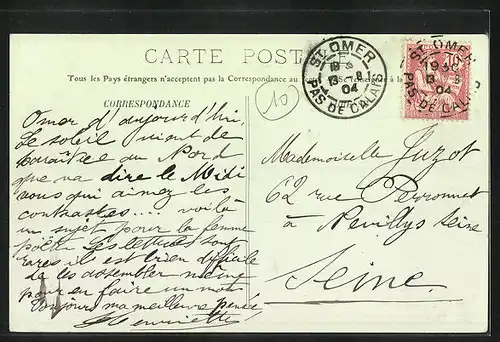 CARTE POSTALE
Tous les Pays étrangers n'acceptent pas la Correspondance au
CORRESPONDANCE
ST OMER
19
13 8
04
PAS DE CALAIS
ST OMER
19
13 8
04
PAS DE CALAIS
10
Omer d'aujourd'hui,
Le soleil vient de
au Nord
que va dire le Midi
vous qui aimez les
contrastes.... voilà
un sujet pour la femme
poète. Les lettres sont
rares il est bien difficile
de les assembler même
pour en faire un mot
Toujours ma meilleure pensée
Henriette
Mademoiselle Juzot
62 rue Perronnet
à Neuilly s Seine
Seine